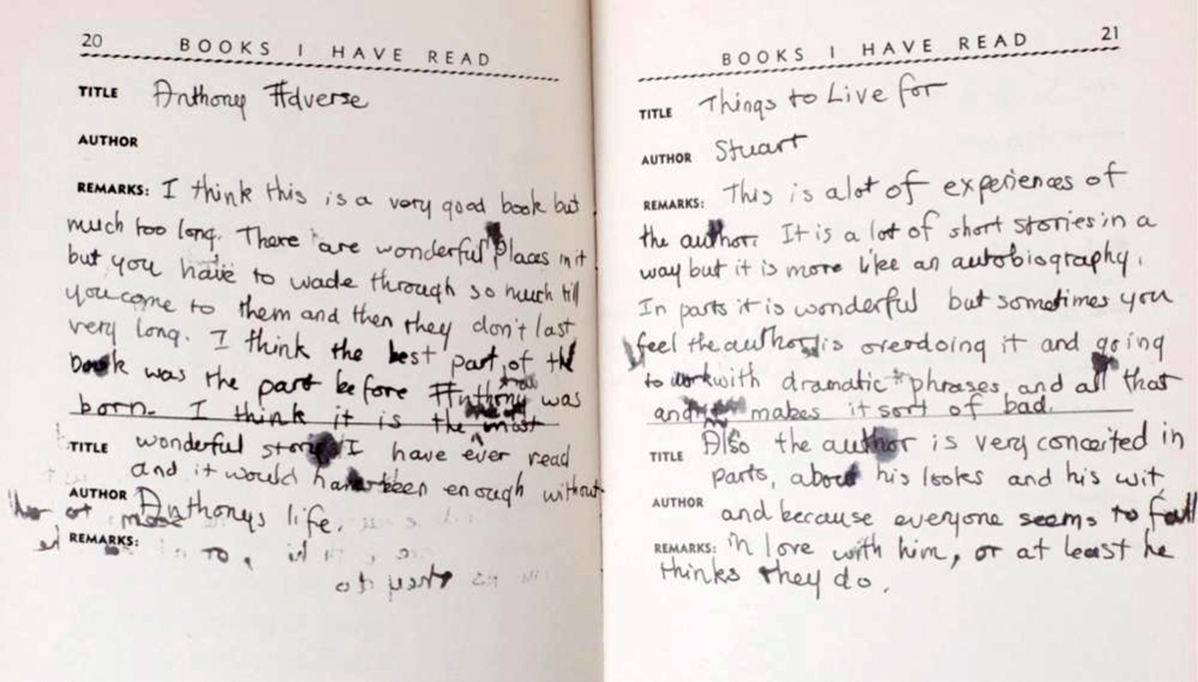 20 BOOKS I HAVE READ
TITLE Anthony Adverse
AUTHOR
REMARKS: I think this is a very good book but
much too long. There are wonderful places in it
but you have to wade through so much till
you come to them and then they don't last
very long. I think the best part of the
book was the part before Anthony was
born. I think it is the most
TITLE wonderful story I have ever read
and it would have been enough without
AUTHOR Anthonys life.
REMARKS:
BOOKS I HAVE READ 21
TITLE Things to Live for
AUTHOR Stuart
REMARKS: This is alot of experiences of
the author. It is a lot of short stories in a
way but it is more like an autobiography.
In parts it is wonderful but sometimes you
feel the author is overdoing it and going
to work with dramatic phrases and all that
and makes it sort of bad.
TITLE Also the author is very conceited in
parts, about his looks and his wit
AUTHOR and because everyone seems to fall
REMARKS: in love with him, or at least he
thinks they do.